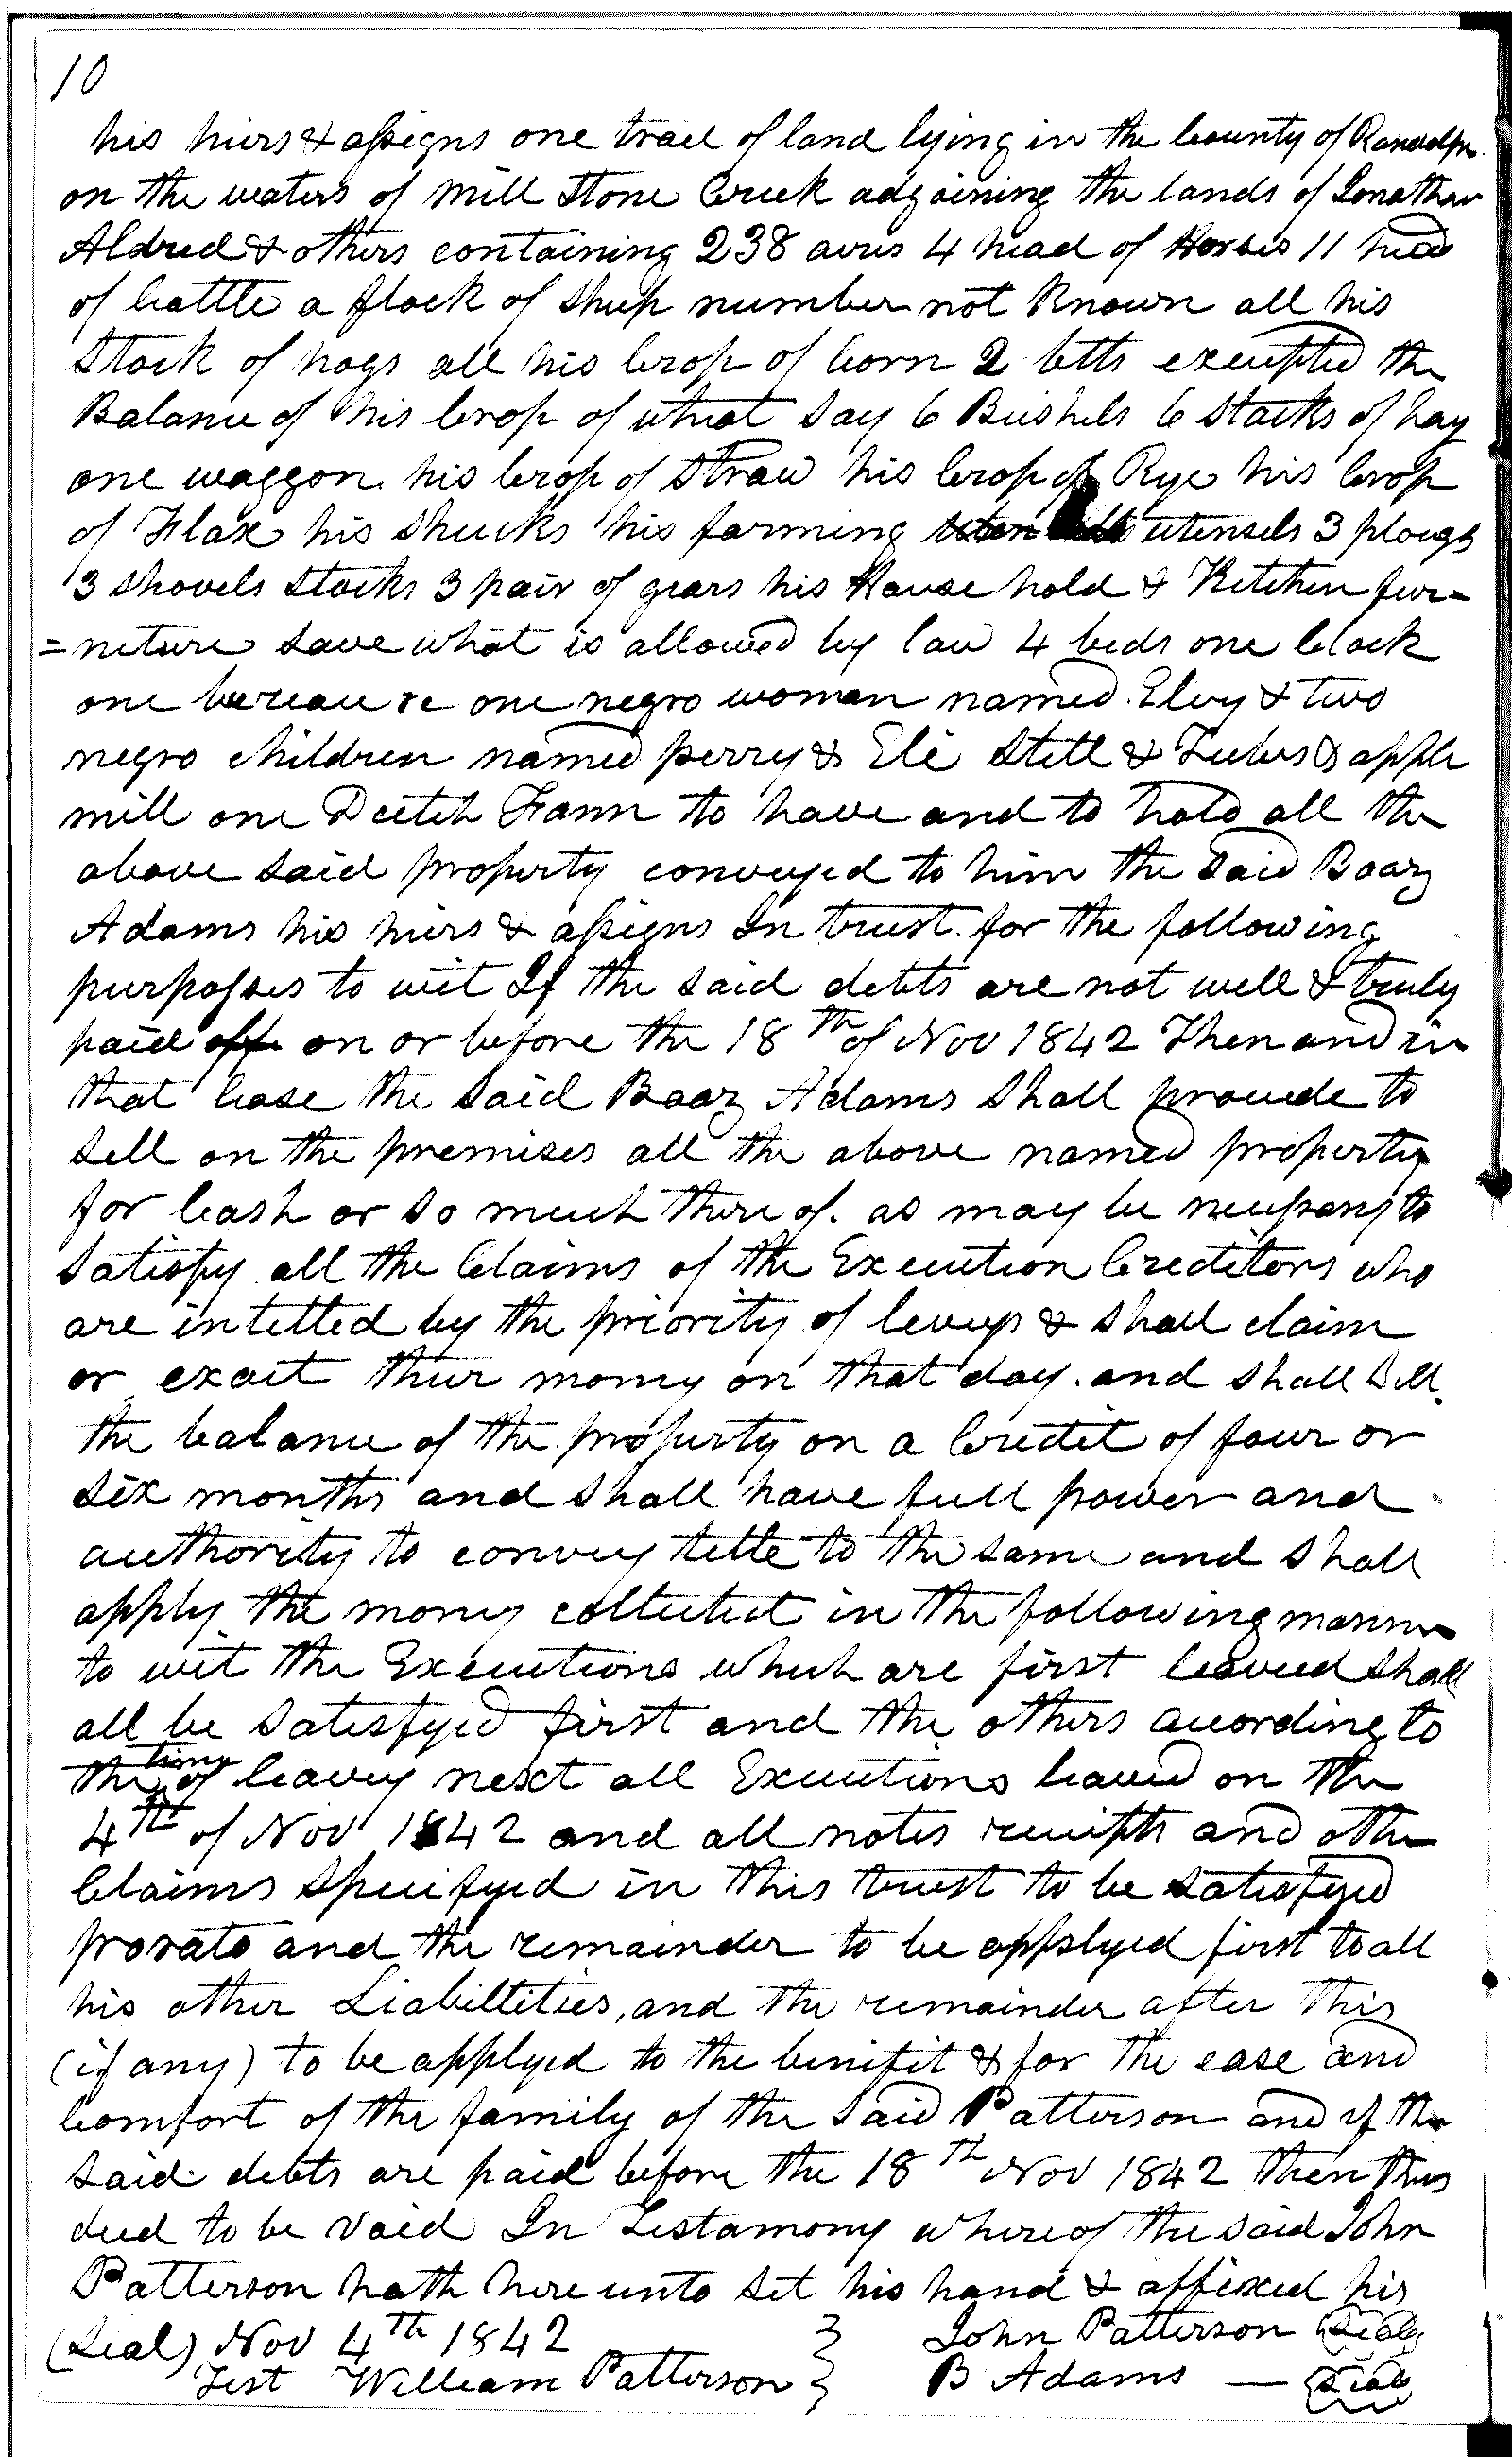 10
his heirs & assigns one tract of land lying in the County of Randolph
on the waters of Mill Stone Creek adjoining the lands of Jonathan
Aldred & others containing 238 acres 4 head of Horses 11 head
of Cattle a flock of Sheep number not Known all his
Stock of hogs all his Crop of Corn 2 lotts excepted the
Balance of his Crop of wheat Say 6 Bushels 6 Stacks of hay
one waggon his Crop of Straw his Crop of Rye his Crop
of Flax his Shucks his farming utensels 3 ploughs
3 Shovels Stocks 3 pair of gears his House hold & Kitchen fur=
=neture Save what is allowed by law 4 beds one Clock
one bureau one negro woman named Elvy & two
negro children named perry & Eli Still & Tubs & apple
mill one Dutch Fann to have and to hold all the
above Said property conveyed to him the Said Boaz
Adams his heirs & assigns In trust for the following
purposses to wit If the Said debts are not well & truly
paid off on or before the 18th of Nov 1842 Then and in
that Case the Said Boaz Adams Shall proceede to
Sell on the premises all the above named property
for Cash or So much there of as may be necessary to
Satisfy all the Claims of the Execution Creditors who
are intitled by the priority of levys & Shall claim
or exact their money on that day and Shall Sell
the balance of the property on a Credit of four or
Six months and Shall have full power and
authority to convey title to the Same and Shall
apply the money collected in the following manner
to wit the Executions which are first leavied Shall
all be Satisfyed first and the others acording to
the time of leavey next all Executions leavied on the
4th of Nov 1842 and all notes receipts and other
Claims Specifyed in this trust to be Satisfyed
prorato and the remainder to be applyed first to all
his other Liabiltities, and the remainder after this
(if any) to be applyed to the benifit & for the ease and
Comfort of the family of the Said Patterson and if the
Said debts are paid before the 18th Nov 1842 then this
deed to be Void In Testamony whereof the Said John
Patterson hath here unto Set his hand & affixed his
(Seal) Nov 4th 1842 } John Patterson Seal
Test William Patterson } B Adams — Seal